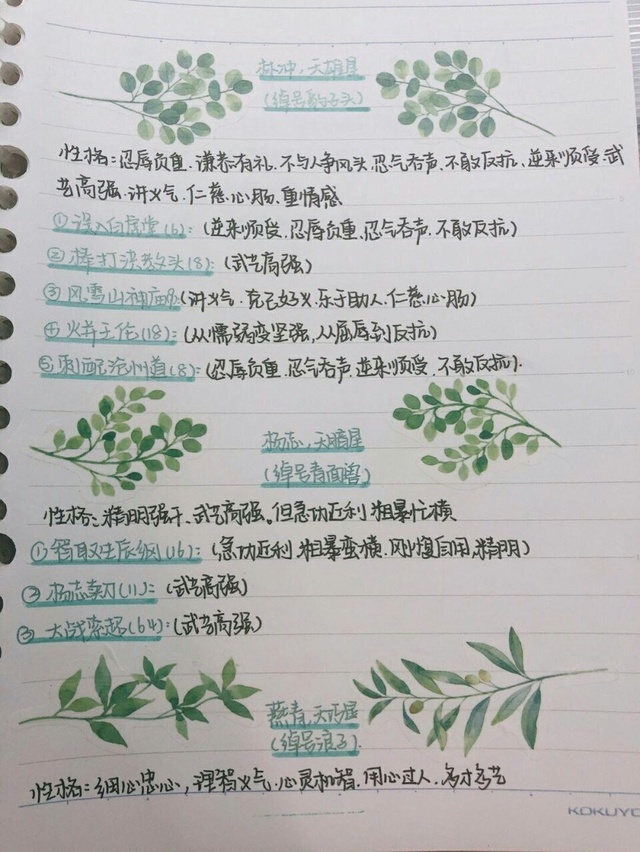 林冲,天雄星
(绰号豹子头)
性格:忍辱负重、谦恭有礼、不与人争风头、忍气吞声、不敢反抗、逆来顺受、武
艺高强、讲义气、仁慈心肠、重情感
①误入白虎堂(6):(逆来顺受、忍辱负重、忍气吞声、不敢反抗)
②棒打洪教头(8):(武艺高强)
③风雪山神庙:(讲义气、克己好义、乐于助人、仁慈心肠)
④火并王伦(18):(从懦弱变坚强,从屈辱到反抗)
⑤刺配沧州道(8):(忍辱负重、忍气吞声、逆来顺受、不敢反抗).
杨志,天暗星
(绰号青面兽)
性格:精明强干、武艺高强。但急功近利 粗暴忙横
①智取生辰纲(16):(急功近利 粗暴蛮横、刚愎自用,精明)
②杨志卖刀(11):(武艺高强)
③大战索超(64):(武艺高强)
燕青,天巧星
(绰号浪子).
性格:细心忠心,理智义气、心灵机智、用心过人、多才多艺
KOKUYO